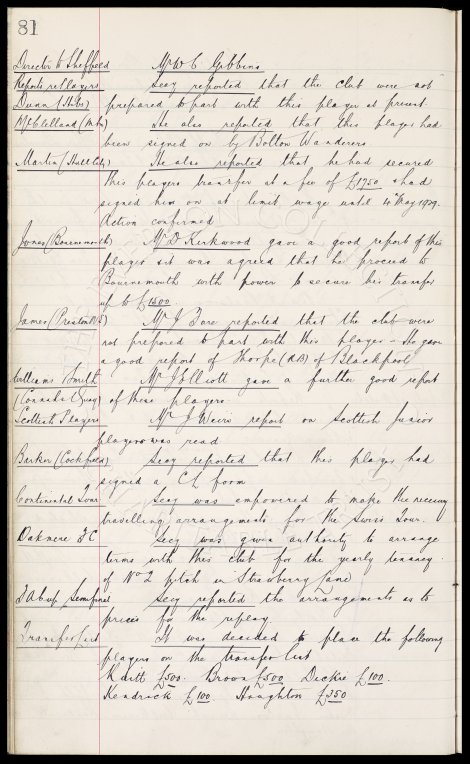 81
Director to Sheffield Mr W C Gibbins
Reports re Players Secy reported that the club were not
Dunn (Hibs) prepared to part with this player at present
McClelland (Mbro) He also reported that this player had
been signed on by Bolton Wanderers
Martin (Hull City) He also reported that he had secured
this players transfer at a fee of £1750 & had
signed him on at limit wage until 4th May 1929.
Action confirmed
James (Bournemouth) Mr D Kirkwood gave a good report of this
player & it was agreed that he proceed to
Bournemouth with power to secure his transfer
up to £1500
James (Preston N E) Mr J Fare reported that the club were
not prepared to part with this player - He gave
a good report of Thorpe (RB) of Blackpool
Williams Smith Mr J Elliott gave a further good report
(Connahs Quay) of these players
Scottish Players Mr J Weirs report on Scottish Junior
players was read
Barker (Cockfield) Secy reported that this player had
signed a CL form
Continental Tour Secy was empowered to make the necessy
travelling arrangements for the Swiss Tour.
Oakmere F C Secy was given authority to arrange
terms with this club for the yearly tenancy
of No 2 pitch in Strawberry Lane
F A Cup Semifinal Secy reported the arrangements as to
prices for the replay
Transfer List It was decided to place the following
players on the transfer list
Raitt £500. Brown £500 Dickie £100.
Kendrick £100 Houghton £350